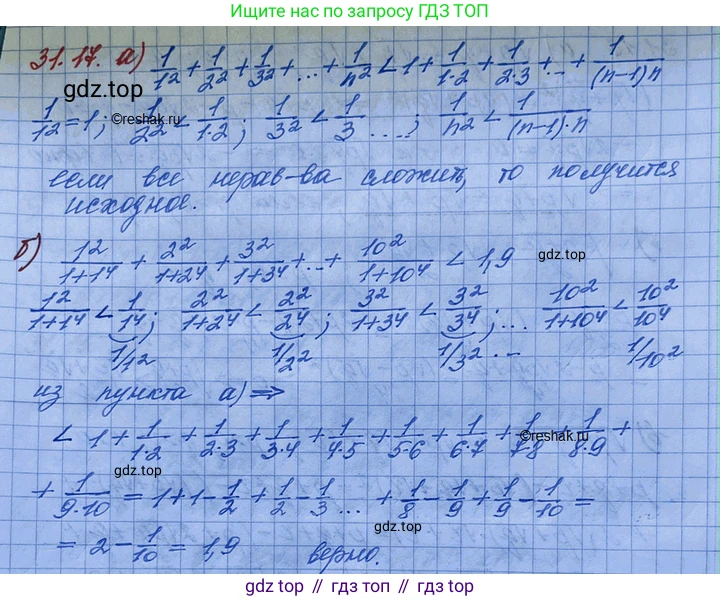 Еще больше решебников по запросу ГДЗ ТОП
31.17. а) 1/1² + 1/2² + 1/3² + ... + 1/n² < 1 + 1/(1·2) + 1/(2·3) + ... + 1/((n-1)n)
gdz.top
1/1² = 1; 1/2² < 1/(1·2); 1/3² < 1/3 ....; 1/n² < 1/((n-1)·n)
©reshak.ru
если все нерав-ва сложить, то получится
исходное.
б) 1²/(1+1⁴) + 2²/(1+2⁴) + 3²/(1+3⁴) + ... + 10²/(1+10⁴) < 1,9
gdz.top
1²/(1+1⁴) < 1/1⁴; 2²/(1+2⁴) < 2²/2⁴; 3²/(1+3⁴) < 3²/3⁴; ... 10²/(1+10⁴) < 10²/10⁴
1/1² 1/2² 1/3² ... 1/10²
из пункта а) ⇒
< 1 + 1/(1·2) + 1/(2·3) + 1/(3·4) + 1/(4·5) + 1/(5·6) + 1/(6·7) + 1/(7·8) + 1/(8·9) +
©reshak.ru
gdz.top
+ 1/(9·10) = 1 + 1 - 1/2 + 1/2 - 1/3 ... + 1/8 - 1/9 + 1/9 - 1/10 =
gdz.top
= 2 - 1/10 = 1,9 верно.
gdz top // гдз топ // gdz top // гдз топ